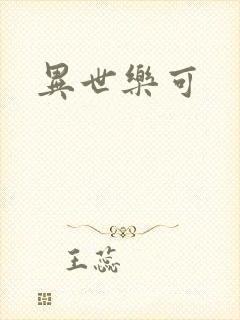 異世樂可
王蕊